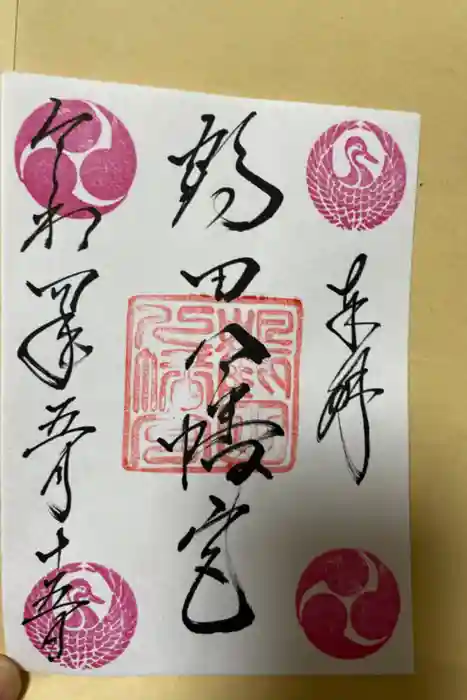 奉拝
鶴田八幡宮
令和四年五月十五日